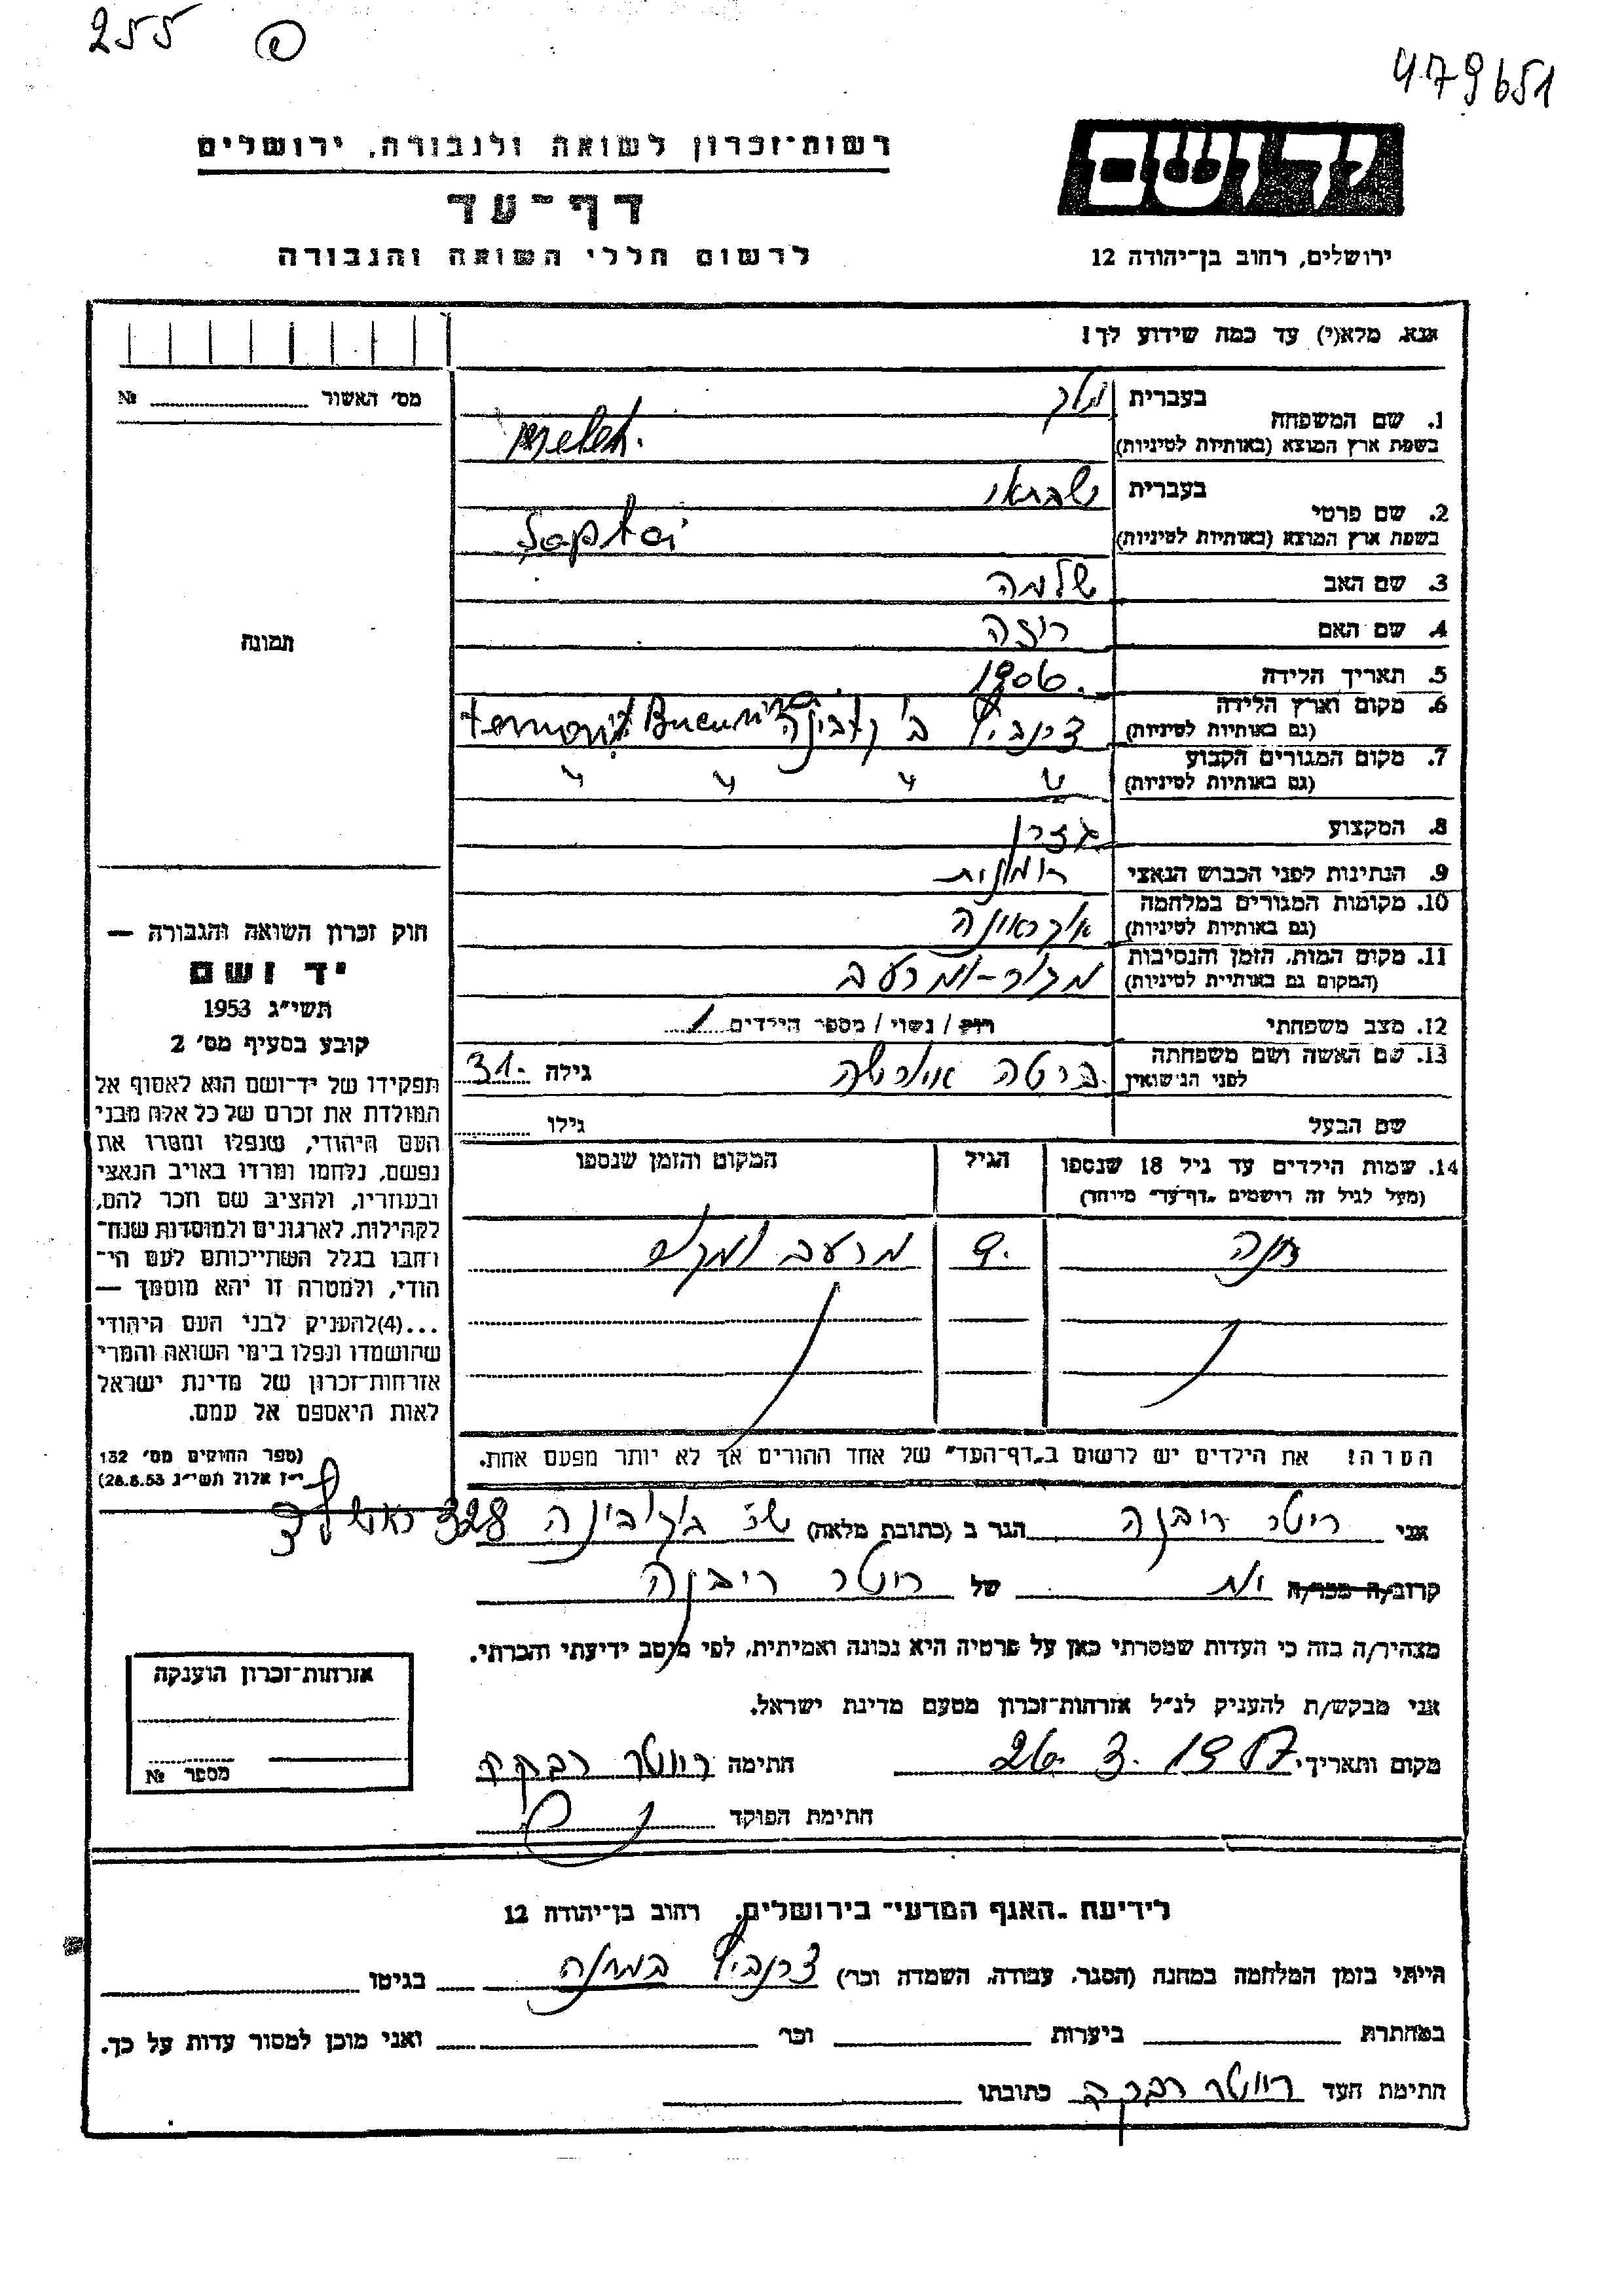 255
479651
יד ושם
רשות־זכרון לשואה ולגבורה, ירושלים
דף־עד
לרשום חללי השואה והגבורה
ירושלים, רחוב בן־יהודה 12
אנא, מלא(י) עד כמה שידוע לך!
מס׳ האשור № 
תמונה
1. שם המשפחה בעברית מלך
בשפת ארץ המוצא (באותיות לטיניות) Meleh.
2. שם פרטי בעברית שבתאי
בשפת ארץ המוצא (באותיות לטיניות) Saptai
3. שם האב שלמה
4. שם האם רוזה
5. תאריך הלידה 1906.
6. מקום וארץ הלידה
(גם באותיות לטיניות) צרנביץ
7. מקום המגורים הקבוע
(גם באותיות לטיניות) " " " "
8. המקצוע
9. הנתינות לפני הכבוש הנאצי רומנית
10. מקומות המגורים במלחמה
(גם באותיות לטיניות) אוקראינה
11. מקום המות, הזמן והנסיבות
(המקום גם באותיות לטיניות) מקור-ומרעב
12. מצב משפחתי רוק / נשוי / מספר הילדים 1
13. שם האשה ושם משפחתה
לפני הנישואין ברטה גילה 31.
שם הבעל גילו
14. שמות הילדים עד גיל 18 שנספו
(מעל לגיל זה רושמים „דף־עד״ מיוחד)
הגיל
המקום והזמן שנספו
חנה 9. מרעב ומקור
הערה! את הילדים יש לרשום ב„דף־העד״ של אחד ההורים אך לא יותר מפעם אחת.
חוק זכרון השואה והגבורה —
יד ושם
תשי״ג 1953
קובע בסעיף מס׳ 2
תפקידו של יד־ושם הוא לאסוף אל
המולדת את זכרם של כל אלה מבני
העם היהודי, שנפלו ומסרו את
נפשם, נלחמו ומרדו באויב הנאצי
ובעוזריו, ולהציב שם וזכר להם,
לקהילות, לארגונים ולמוסדות שנח־
רחבו בגלל השתייכותם לעם הי־
הודי, ולמטרה זו יהא מוסמך —
...(4)להעניק לבני העם היהודי
שהושמדו ונפלו בימי השואה והמרי
אזרחות־זכרון של מדינת ישראל
לאות היאספם אל עמם.
(ספר החוקים מס׳ 132
י״ז אלול תשי״ג 28.8.53)
אני רוטר רובקה הגר ב (כתובת מלאה) 328
קרוב/ה מכר/ה של רוטר ריבקה
מצהיר/ה בזה כי העדות שמסרתי כאן על פרטיה היא נכונה ואמיתית, לפי מיטב ידיעתי והכרתי.
אני מבקש/ת להעניק לנ״ל אזרחות־זכרון מטעם מדינת ישראל.
מקום ותאריך, 26.3.1957 חתימה רוטר רבקה
חתימת הפוקד
אזרחות־זכרון הוענקה
מספר №
לידיעת „האגף המדעי״ בירושלים, רחוב בן־יהודה 12
הייתי בזמן המלחמה במחנה (הסגר, עבודה, השמדה וכו׳) צרנביץ במחנה בגיטו
במחתרת ביערות וכו׳ ואני מוכן למסור עדות על כך.
חתימת העד רוטר רבקה כתובתו